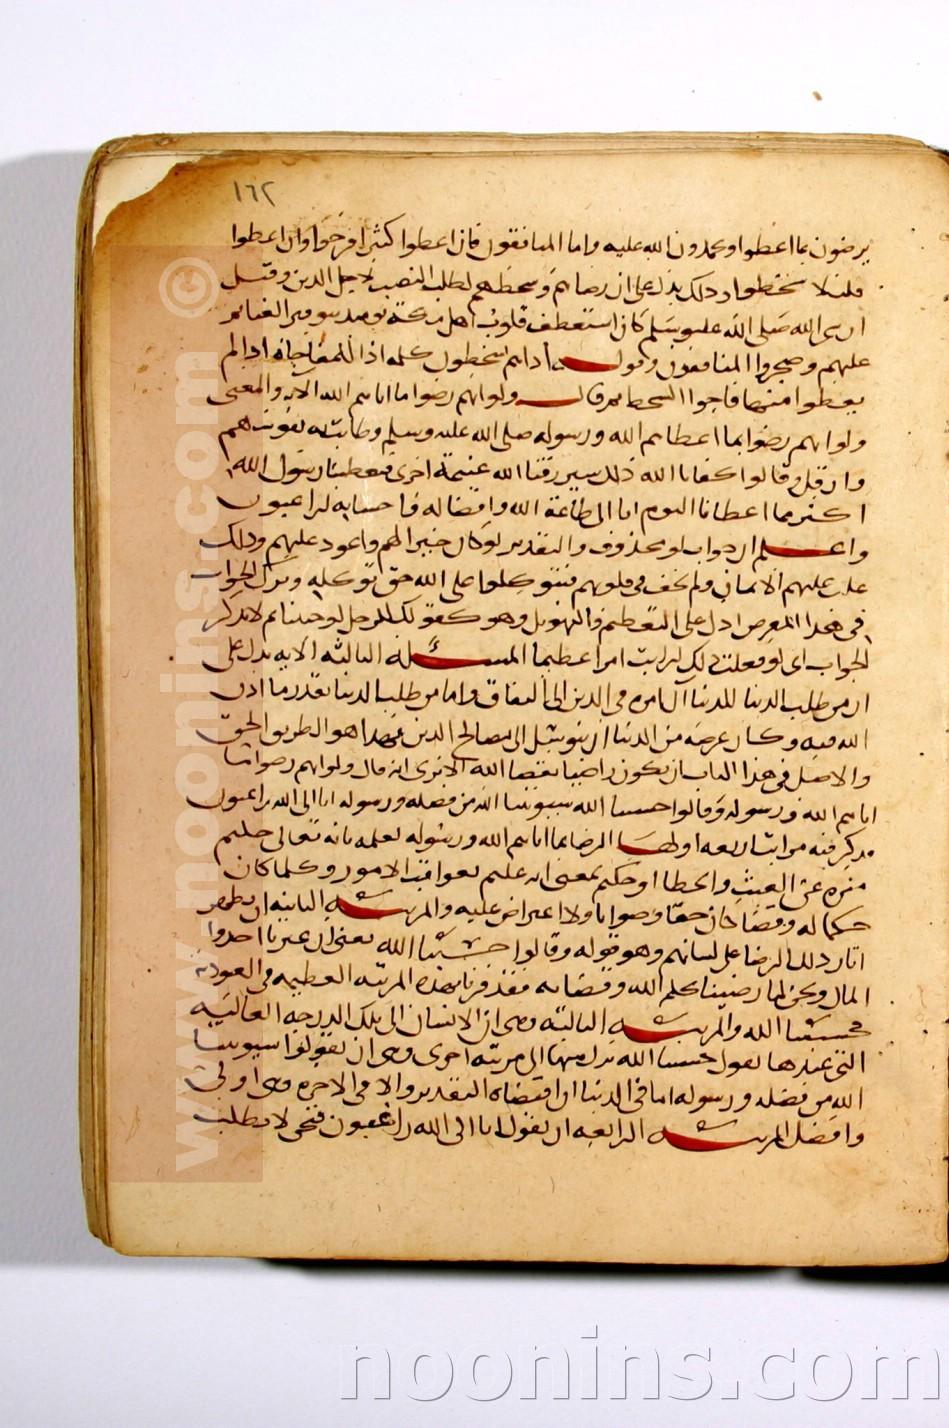 ١٦٢
يرضون بما اعطوا ويحمدون الله عليه واما المنافقون فان اعطوا كثيرا فرحوا وان اعطوا
قليلا سخطوا وذلك يدل على ان رضاهم وسخطهم لطلب النصيب لا لاجل الدين وقيل
ان النبى الله صلى الله عليه وسلم كان استعطف قلوب اهل مكة يومئذ بتوفير الغنائم
عليهم وضجروا المنافقون وقوله اذا هم يسخطون كلمه اذا للمفاجاه اى اذا لم
يعطوا منها فاجوا السخط ثم قال ولو انهم رضوا ما اتاهم الله الايه والمعنى
ولو انهم رضوا بما اعطاهم الله ورسوله صلى الله عليه وسلم وطابت به نفوسهم
وان قل وقالوا كفانا الله ذلك سيرزقنا الله غنيمة اخرى فيعطينا رسول الله
اكثر مما اعطانا اليوم انا الى طاعة الله وافضاله واحسانه لراغبون
واعلم ان جواب لو محذوف والتقدير لو كان خيرا لهم واعود عليهم وذلك
غلب عليهم الايمان ولم يخف فى قلوبهم فيتوكلوا على الله حق توكله وترك الجواب
فى هذا المعرض ادل على التعظيم والتهويل وهو كقولك للرجل لو جئتنا ثم لا تذكر
الجواب اى لو فعلت ذلك لرايت امرا عظيما المسئلة الثالثه الآيه يدل على
ان من طلب الدنيا للدنيا آل امره فى الدين الى النفاق واما من طلب الدنيا بقدر ما اذن
الله فيه وكان غرضه من الدنيا ان يتوسل الى مصالح الدين فهذا هو الطريق الحق
والاصل فى هذا الباب ان يكون راضيا بقضا الله الا ترى انه قال ولو انهم رضوا بما
اتاهم الله ورسوله وقالوا حسبنا الله سيوتينا الله من فضله ورسوله انا الى الله راغبون
فذكر فيه مراتب اربعه اولها الرضا بما اتاهم الله ورسوله لعلمه بانه تعالى حكيم
منزه عن العبث والخطا او حكيم بمعنى انه عليم بعواقب الامور وكلما كان
حكما له وقضا كان حقا وصوابا ولا اعتراض عليه والمرتبه الثانيه ان يظهر
اثار ذلك الرضا على لسانهم وهو قوله وقالوا حسبنا الله يعنى ان غيرنا اخذوا
المال ونحن لما رضينا بحكم الله وقضائه فقد فزنا بهذه المرتبه العظيمه فى العوديه
فحسبنا الله والمرتبه الثالثه وهى ان الانسان الى تلك الدرجه العاليه
التى عندها يقول حسبنا الله نزل منها الى مرتبه اخرى وهى ان يقولوا سيوتينا
الله من فضله ورسوله اما فى الدنيا ان اقتضاه التقدير والا فى الاخره وهى اولى
وافضل المرتبه الرابعه ان يقول انا الى الله راغبون فنحن لا نطلب
www.noonins.com ©
noonins.com